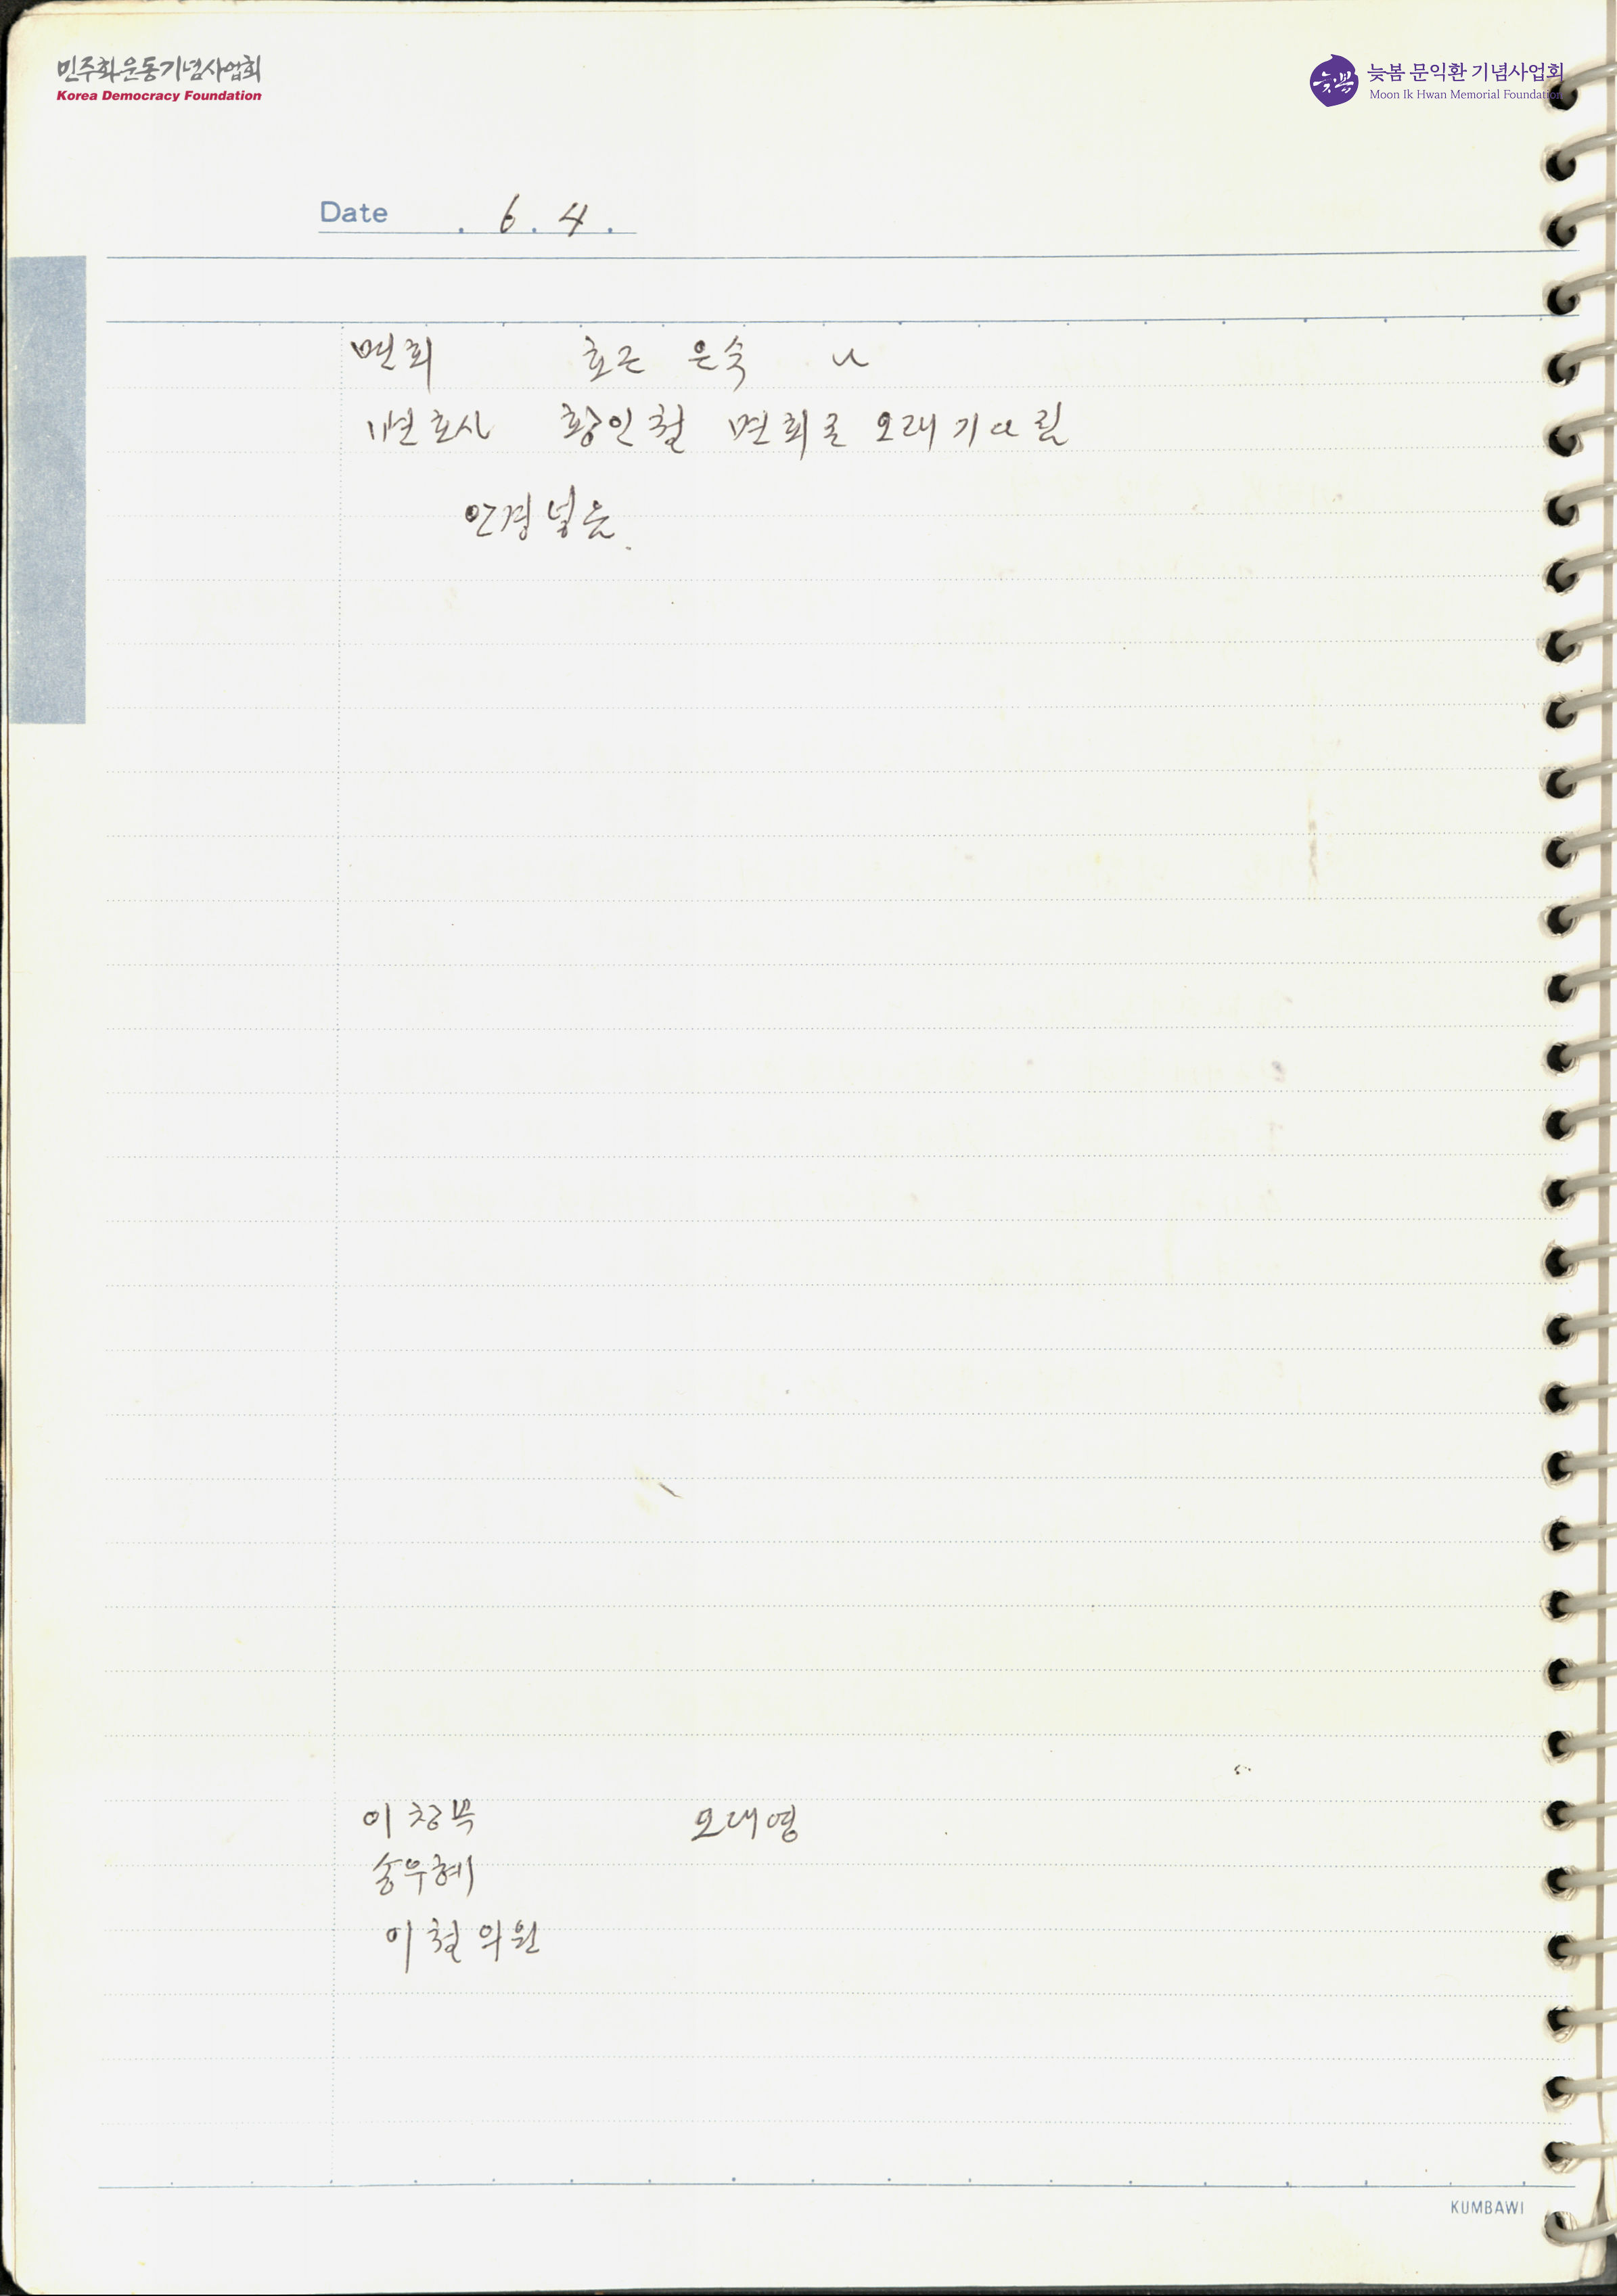 민주화운동기념사업회
Korea Democracy Foundation
늦봄
늦봄 문익환 기념사업회
Moon Ik Hwan Memorial Foundation
Date . 6 . 4 .
면회 호근 은숙 나
변호사 황인철 면회로 오래 기다림
안경 넣음.
이창복 오대영
송우혜
이철 의원
KUMBAWI